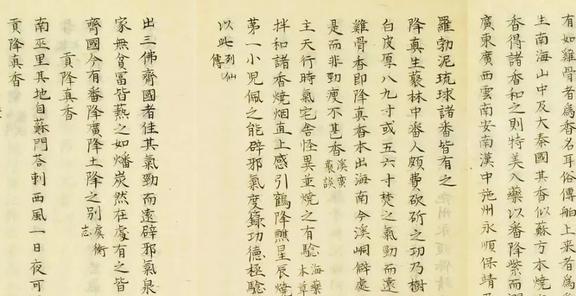 有如雞骨者爲香名耳俗傳舶上来者爲
生南海山中及大秦國其香似蘇方木燒
香得諸香和之則特美入藥以番降紫而
廣東廣西雲南安南漢中施州永順保靖
羅勃泥琉球諸香皆有之
降真生叢林中番人頗費砍斫之功乃樹
白皮厚八九寸或五六寸焚之氣勁而遠
雞骨香即降真香本出海南今溪峒僻處
是而非勁瘦不甚香溪蠻叢談
主天行時氣宅舍怪異並燒之有驗海藥本草
拌和諸香燒烟直上感引鶴降醮星辰燒
第一小兒佩之能辟邪氣度籙功德極驗
以此列仙傳
出三佛齊國者佳其氣勁而遠辟邪氣泉
家無貧富皆爇之如燔炭然在處有之皆
齊國今有番降廣降土降之别虞衡志
貢降真香
南巫里其地自蘇門荅剌西風一日夜可
貢降真香